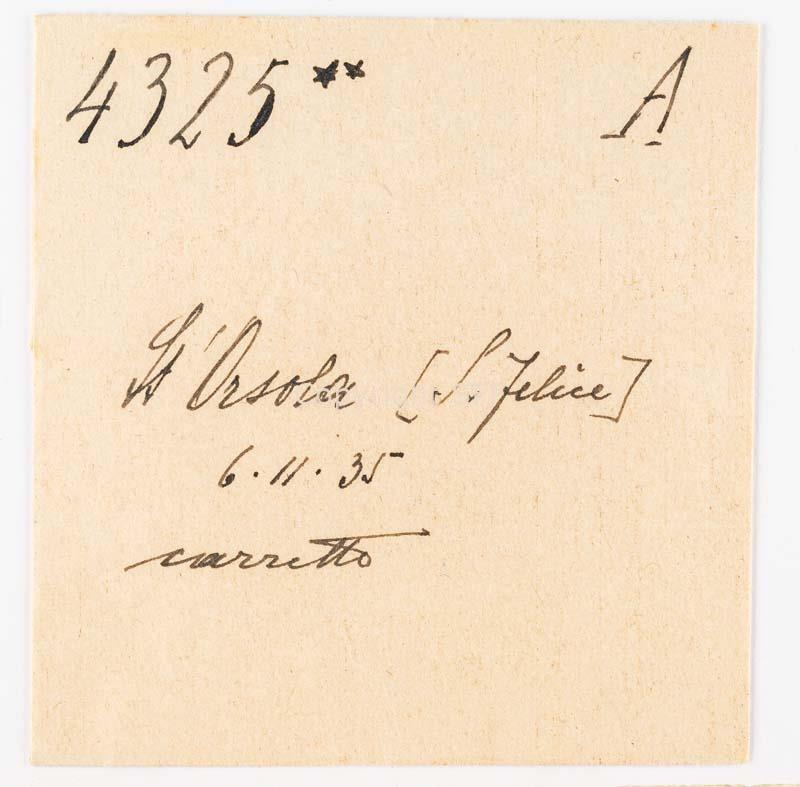 4325** A
St' Orsola [S. Felice]
6.11.35
carretto